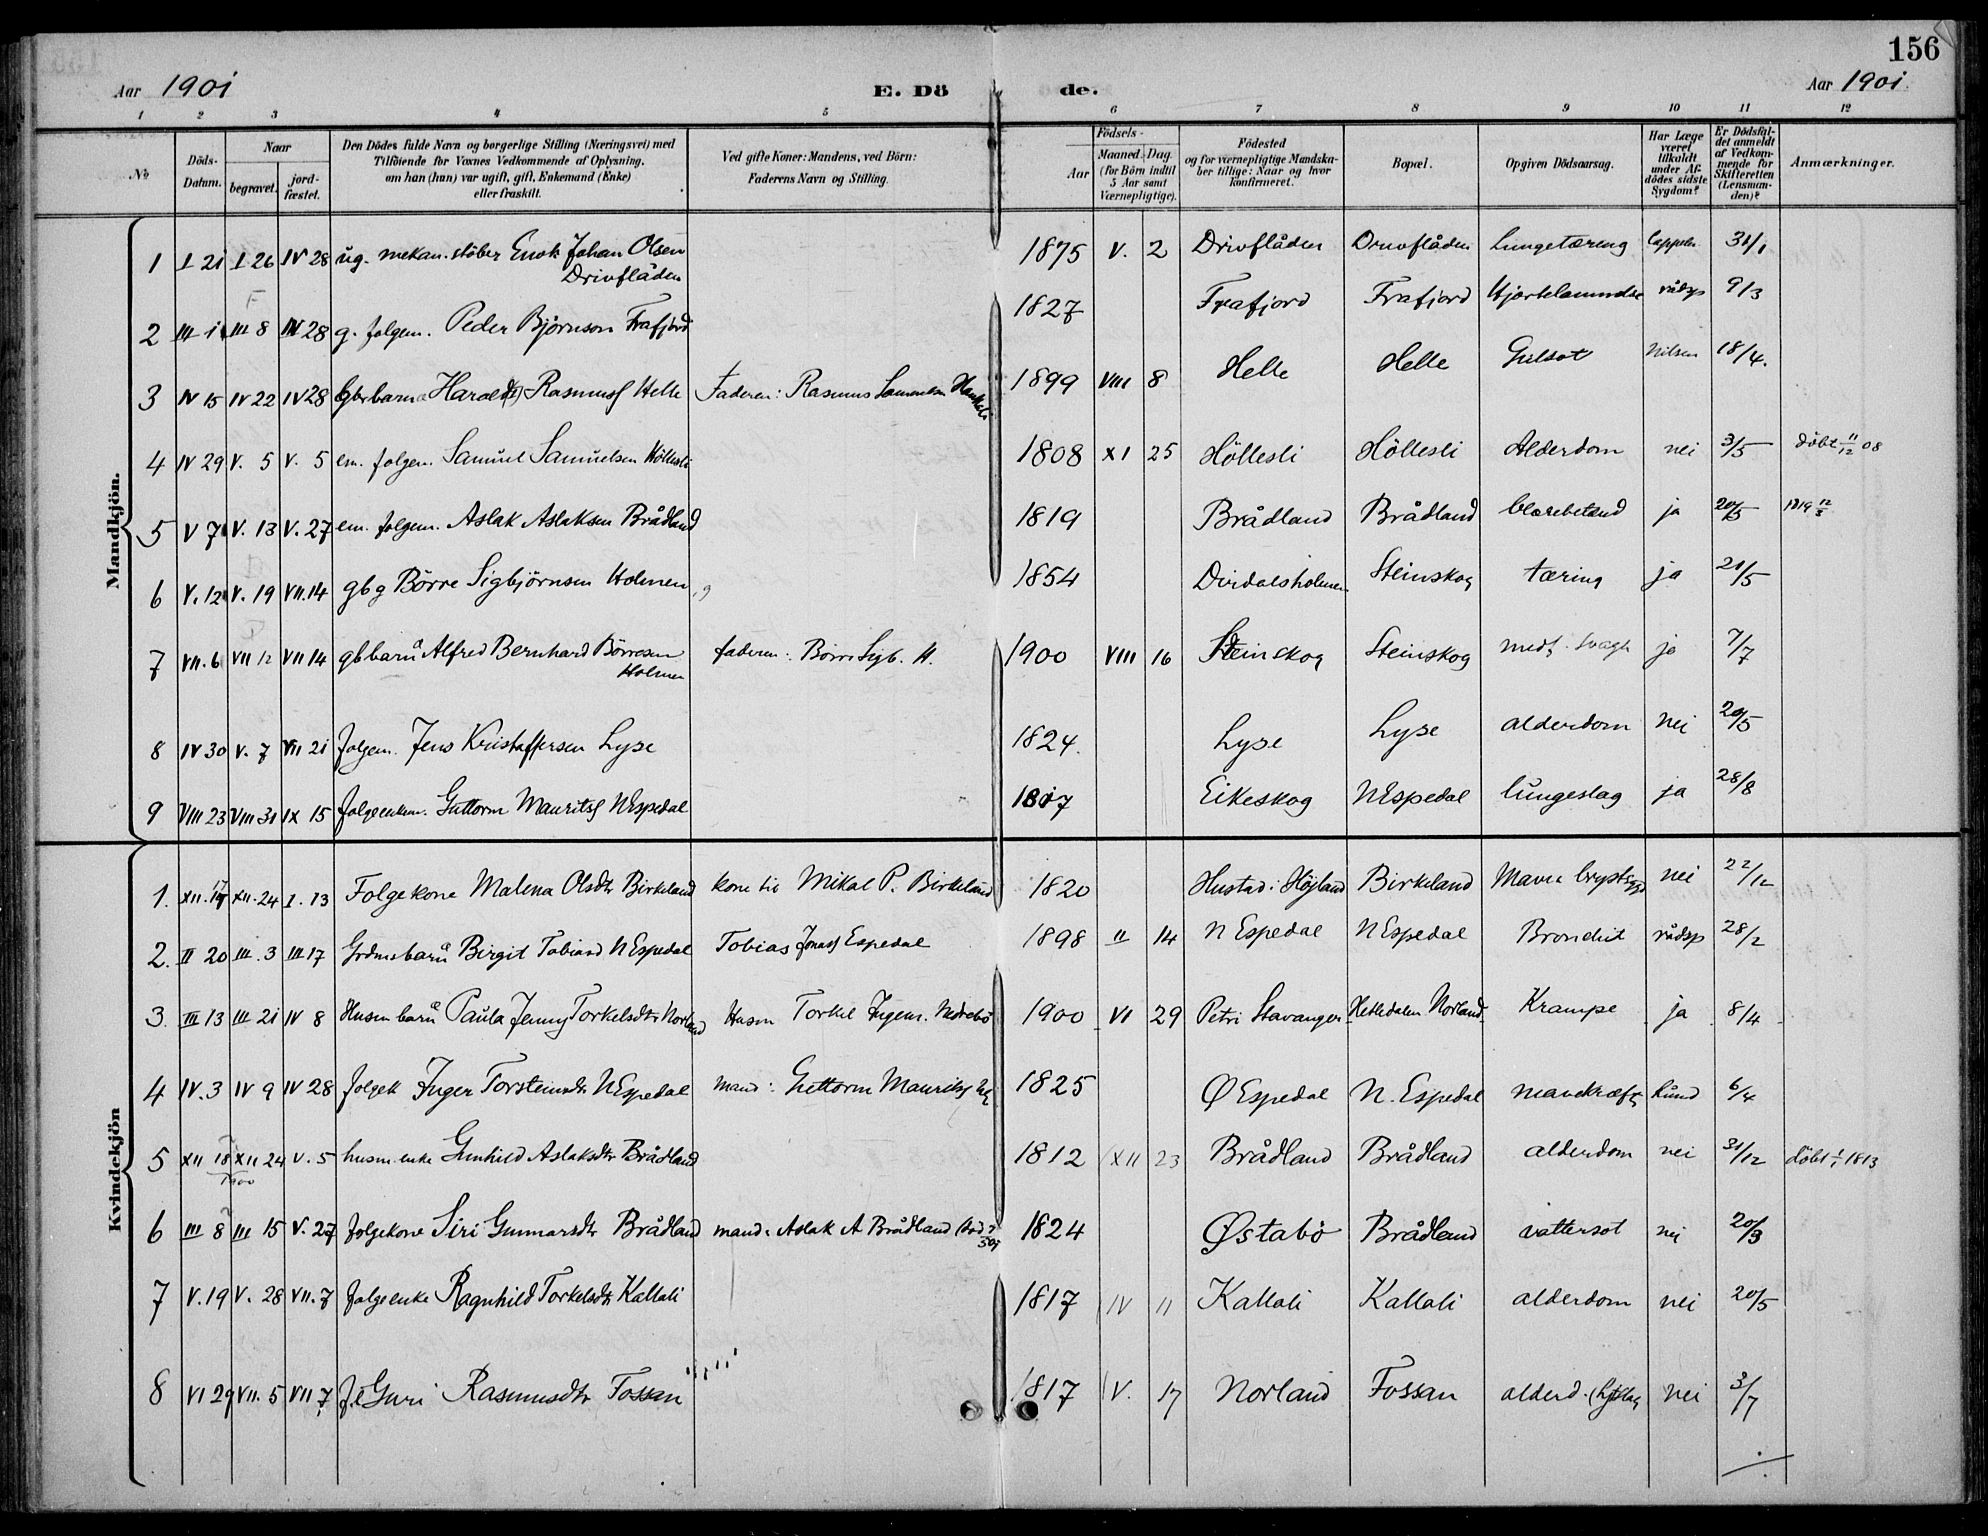 156
Aar 1901
E. Dö de.
Aar 1901.
1 2 3 4 5 6 7 8 9 10 11 12
No
Döds-Datum.
Naar
begravet.
jord-fæstet.
Den Dödes fulde Navn og borgerlige Stilling (Næringsvei) med
Tilföiende for Voxnes Vedkommende af Oplysning,
om han (hun) var ugift, gift, Enkemand (Enke)
eller fraskilt.
Ved gifte Koner: Mandens, ved Börn:
Faderens Navn og Stilling.
Födsels-
Aar
Maaned. Dag.
(for Börn indtil
5 Aar samt
Værnepligtige).
Födested
og for værnepligtige Mandska-
ber tillige: Naar og hvor
konfirmeret.
Bopæl.
Opgiven Dödsaarsag.
Har Læge
været
tilkaldt
under Af-
dödes sidste
Sygdom?
Er Dödsfal-
det anmeldt
af Vedkom-
mende for
Skifteretten
(Lensman-
den)?
Anmærkninger.
Mandkjön.
1 I 21 I 26 IV 28 ug. mekan. stöber Enok Johan Olsen Drivflåden 1875 V. 2 Drivflåden Drivflåden Lungetæring 31/1
2 III 1 III 8 IV 28 g. folgem. Peder Bjørnson Frafjord 1827 Frafjord Frafjord rådsp 9/3
3 IV 15 IV 22 IV 28 Gbrbarn Harald Rasmuss Helle Faderen: Rasmus 1899 VIII 8 Helle Helle Gulsot Nilsen 18/4.
4 IV 29 V. 5 V. 5 em. folgem. Samuel Samuelsen Höllesli 1808 XI 25 Höllesli Höllesli Alderdom nei 3/5 döbt 11/12 08
5 V 7 V. 13 V. 27 em. folgem. Aslak Aslaksen Brådland 1819 Brådland Brådland blærebetænd ja 20/5 1819 12/3
6 V. 12 V. 19 VII.14 gbg Börre Sigbjörnsen Holmen 1854 Dirdalsholmen Steinskog tæring ja 21/5
7 VII. 6 VII 12 VII 14 gbbarn Alfred Bernhard Börresen Holmen faderen: Börre Sigb. H. 1900 VIII 16 Steinskog Steinskog medf. svagh ja 7/7
8 IV 30 V. 7 VII 21 folgem. Jens Kristoffersen Lyse 1824. Lyse Lyse alderdom nei 20/5
9 VIII 23 VIII 31 IX 15 folgeenkem. Guttorm Mauritss NEspedal 1817 Eikeskog NEspedal lungeslag ja 28/8
Kvindekjön
1. XII. 17 XII. 24 I. 13 Folgekone Malena Olsdtr Birkeland kone til Mikal P. Birkeland 1820 Hustad i Höjland Birkeland nei 22/12
2. II 20 III. 3 III 17 Grdmsbarn Birgit Tobiasd NEspedal Tobias Jonass Espedal 1898 II 14 N Espedal NEspedal Bronchit rådsp 28/2
3. III 13 III 21 IV 8 Husm barn Paula Jenny Torkelsdtr Norland Husm Torkel Ingem. Nedrebö 1900 VI 29 Petri Stavanger Hetledalen Norland Krampe ja 8/4
4 IV. 3 IV 9 IV 28 folgek Inger Torsteinsdtr NEspedal mand: Guttorm Mauritss 1825 Ø Espedal N. Espedal mavekræft Lund 6/4
5 XII 18 1900 XII 24 V. 5 husm. enke Gunhild Aslaksdtr Brådland 1812 XII 23 Brådland Brådland alderdom nei 31/12 döbt 1/1 1813
6 III 8 III 15 V. 27 folgekone Siri Gunnarsdtr Brådland mand: Aslak A Brådland 1824 Østabö Brådland vattersot nei 20/3
7 V. 19 V. 28 VII. 7 folgeenke Ragnhild Torkelsdtr Kallali 1817 IV 11 Kallali Kallali alderdom nei 20/5
8 VI 29 VII. 5 VII 7 f.e Guri Rasmusdtr Fossan 1817 V. 17 Norland Fossan alderd. nei 3/7